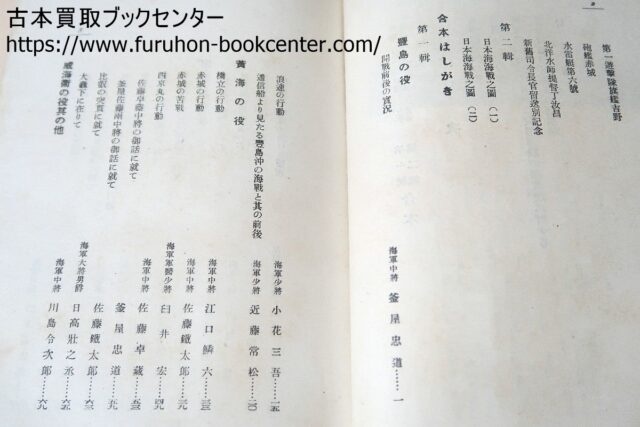 古本買取ブックセンター
https://www.furuhon-bookcenter.com/
2
第一遊擊隊旗艦吉野
砲艦赤城
水雷艇第六號
北洋水師提督丁汝昌
新舊司令長官送別記念
第二輯
日本海海戰之圖（一）
日本海海戰之圖（二）
合本はしがき
第一輯
豐島の役
開戰前後の實況 海軍中將 釜屋忠道……一
浪速の行動 海軍少將 小花三吾……一五
通信船より見たる豐島沖の海戰と其の前後 海軍少將 近藤常松……二〇
黃海の役
橋立の行動 海軍中將 江口鱗六……三三
赤城の行動 海軍中將 佐藤鐵太郎……三九
赤城の苦戰
西京丸の行動 海軍軍醫少將 臼井宏……四九
佐藤卓藏中將の御話に就て 海軍中將 佐藤卓藏……五三
釜屋佐藤兩中將の御話に就て 釜屋忠道……五九
比叡の突貫に就て 佐藤鐵太郎……六三
大纛下に在りて 海軍大將男爵 日高壯之丞……六五
威海衞の役其の他 海軍中將 川島令次郎……六九